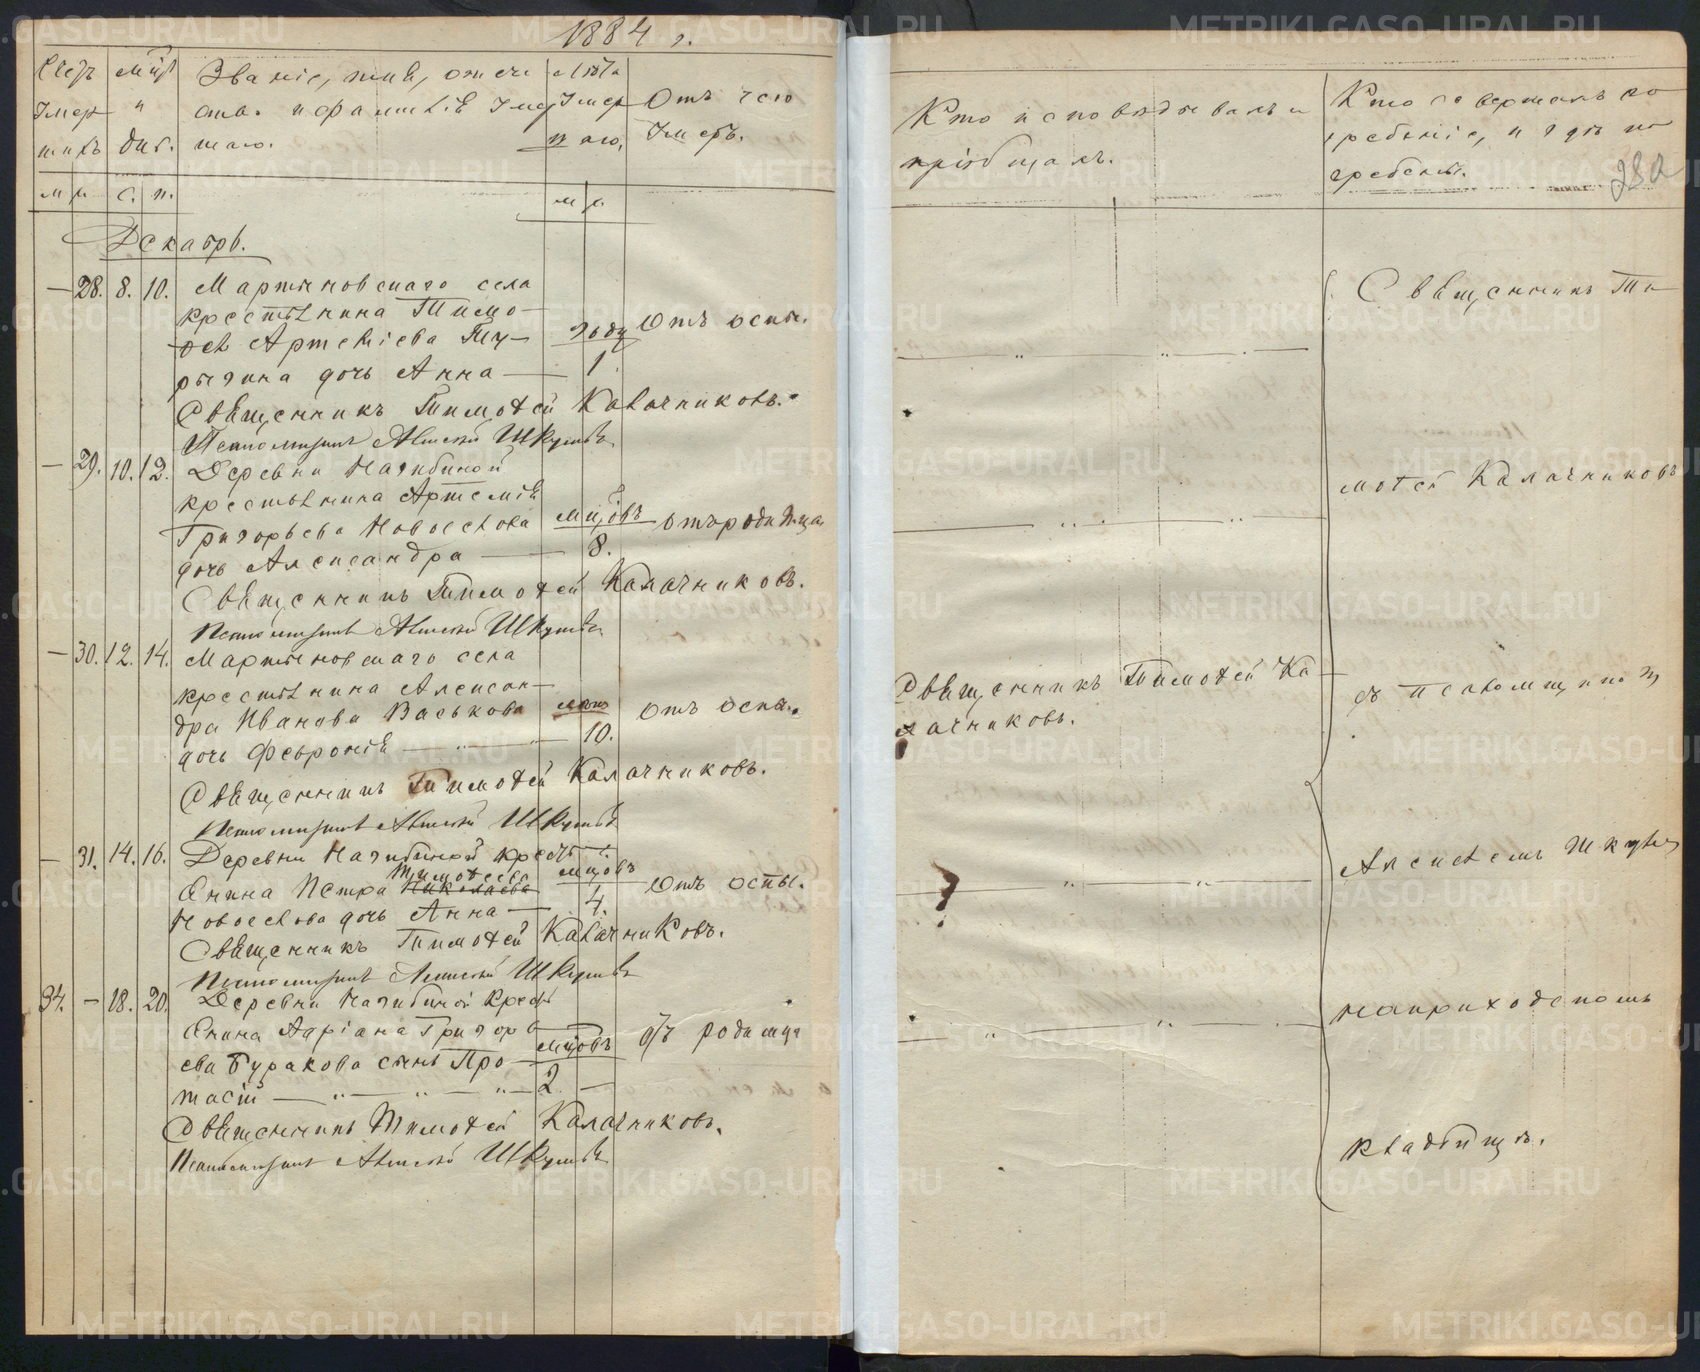 1884 г.
Счетъ
Умер
шихъ
Мцъ
"
дни.
Званіе, имя, отче
ство. и фамилія Умер
шаго.
Лѣта
Умер
шаго.
Отъ чего
Умеръ.
м ж
с. п.
м ж
Декабрь.
— 28. 8. 10. Мартыновскаго села
крестьянина Тимо-
ѳея Артемієва
дочь Анна —
году
1
Отъ оспы.
Священникъ Тимоѳей Калачниковъ.
Псаломщикъ Алексѣй Шкулевъ
— 29. 10. 12. Деревни Нагибиной
крестьянина Артемія
Григорьева Новоселова
дочь Александра —
мцовъ
8.
отъ родимца
Священникъ Тимоѳей Калачниковъ.
Псаломщикъ Алексѣй Шкулевъ
— 30. 12. 14. Мартыновскаго села
крестьянина Алексан-
дра Иванова Васькова
дочь Февронія — " —
лѣтъ
10.
Отъ оспы.
Священникъ Тимоѳей Калачниковъ.
Псаломщикъ Алексѣй Шкулевъ
— 31. 14. 16. Деревни Нагибиной кресть
янина Петра Николаева
Тимоѳеева
Новоселова дочь Анна —
мцовъ
4.
Отъ оспы.
Священникъ Тимоѳей Калачниковъ.
Псаломщикъ Алексѣй Шкулевъ
34. — 18. 20. Деревни Нагибиной кресть
янина Адріана Григорь
ева Буракова сынъ Про
тасій — " — " — " —
мцовъ
2 —
отъ родимца
Священникъ Тимоѳей Калачниковъ.
Псаломщикъ Алексѣй Шкулевъ
Кто исповѣдывалъ и
пріобщалъ.
Кто совершалъ по
гребеніе, и гдѣ по
гребены.
280
Священникъ Ти-
моѳей Калачниковъ
Священникъ Тимоѳей Ка-
лачниковъ.
съ псаломщикомъ
Алексѣемъ Шкулевымъ
на приходскомъ
кладбищѣ.
METRIKI.GASO-URAL.RU